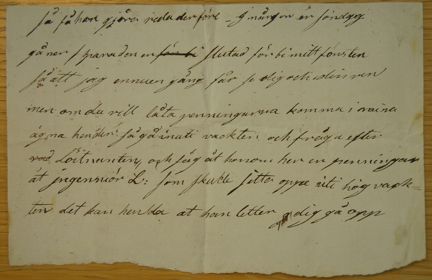 så få han gjöra reda derföre. I mårgon är söndag
går när Paraden er slutad förbi mitt fönster
så att jag ennu en gång får se dig och din vän
men om du vill låta penningarna komma i mina
ägna hender så gå in uti vackten och fråga efter
Löitnanten, och säg åt honom her er penningar
åt ingenieör L: som skulle sitta oppe uti högvack=
ten det kan henda at han letter dig gå opp